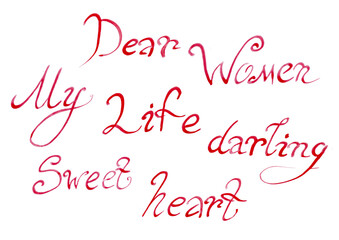 Dear Women
My Life darling
Sweet heart